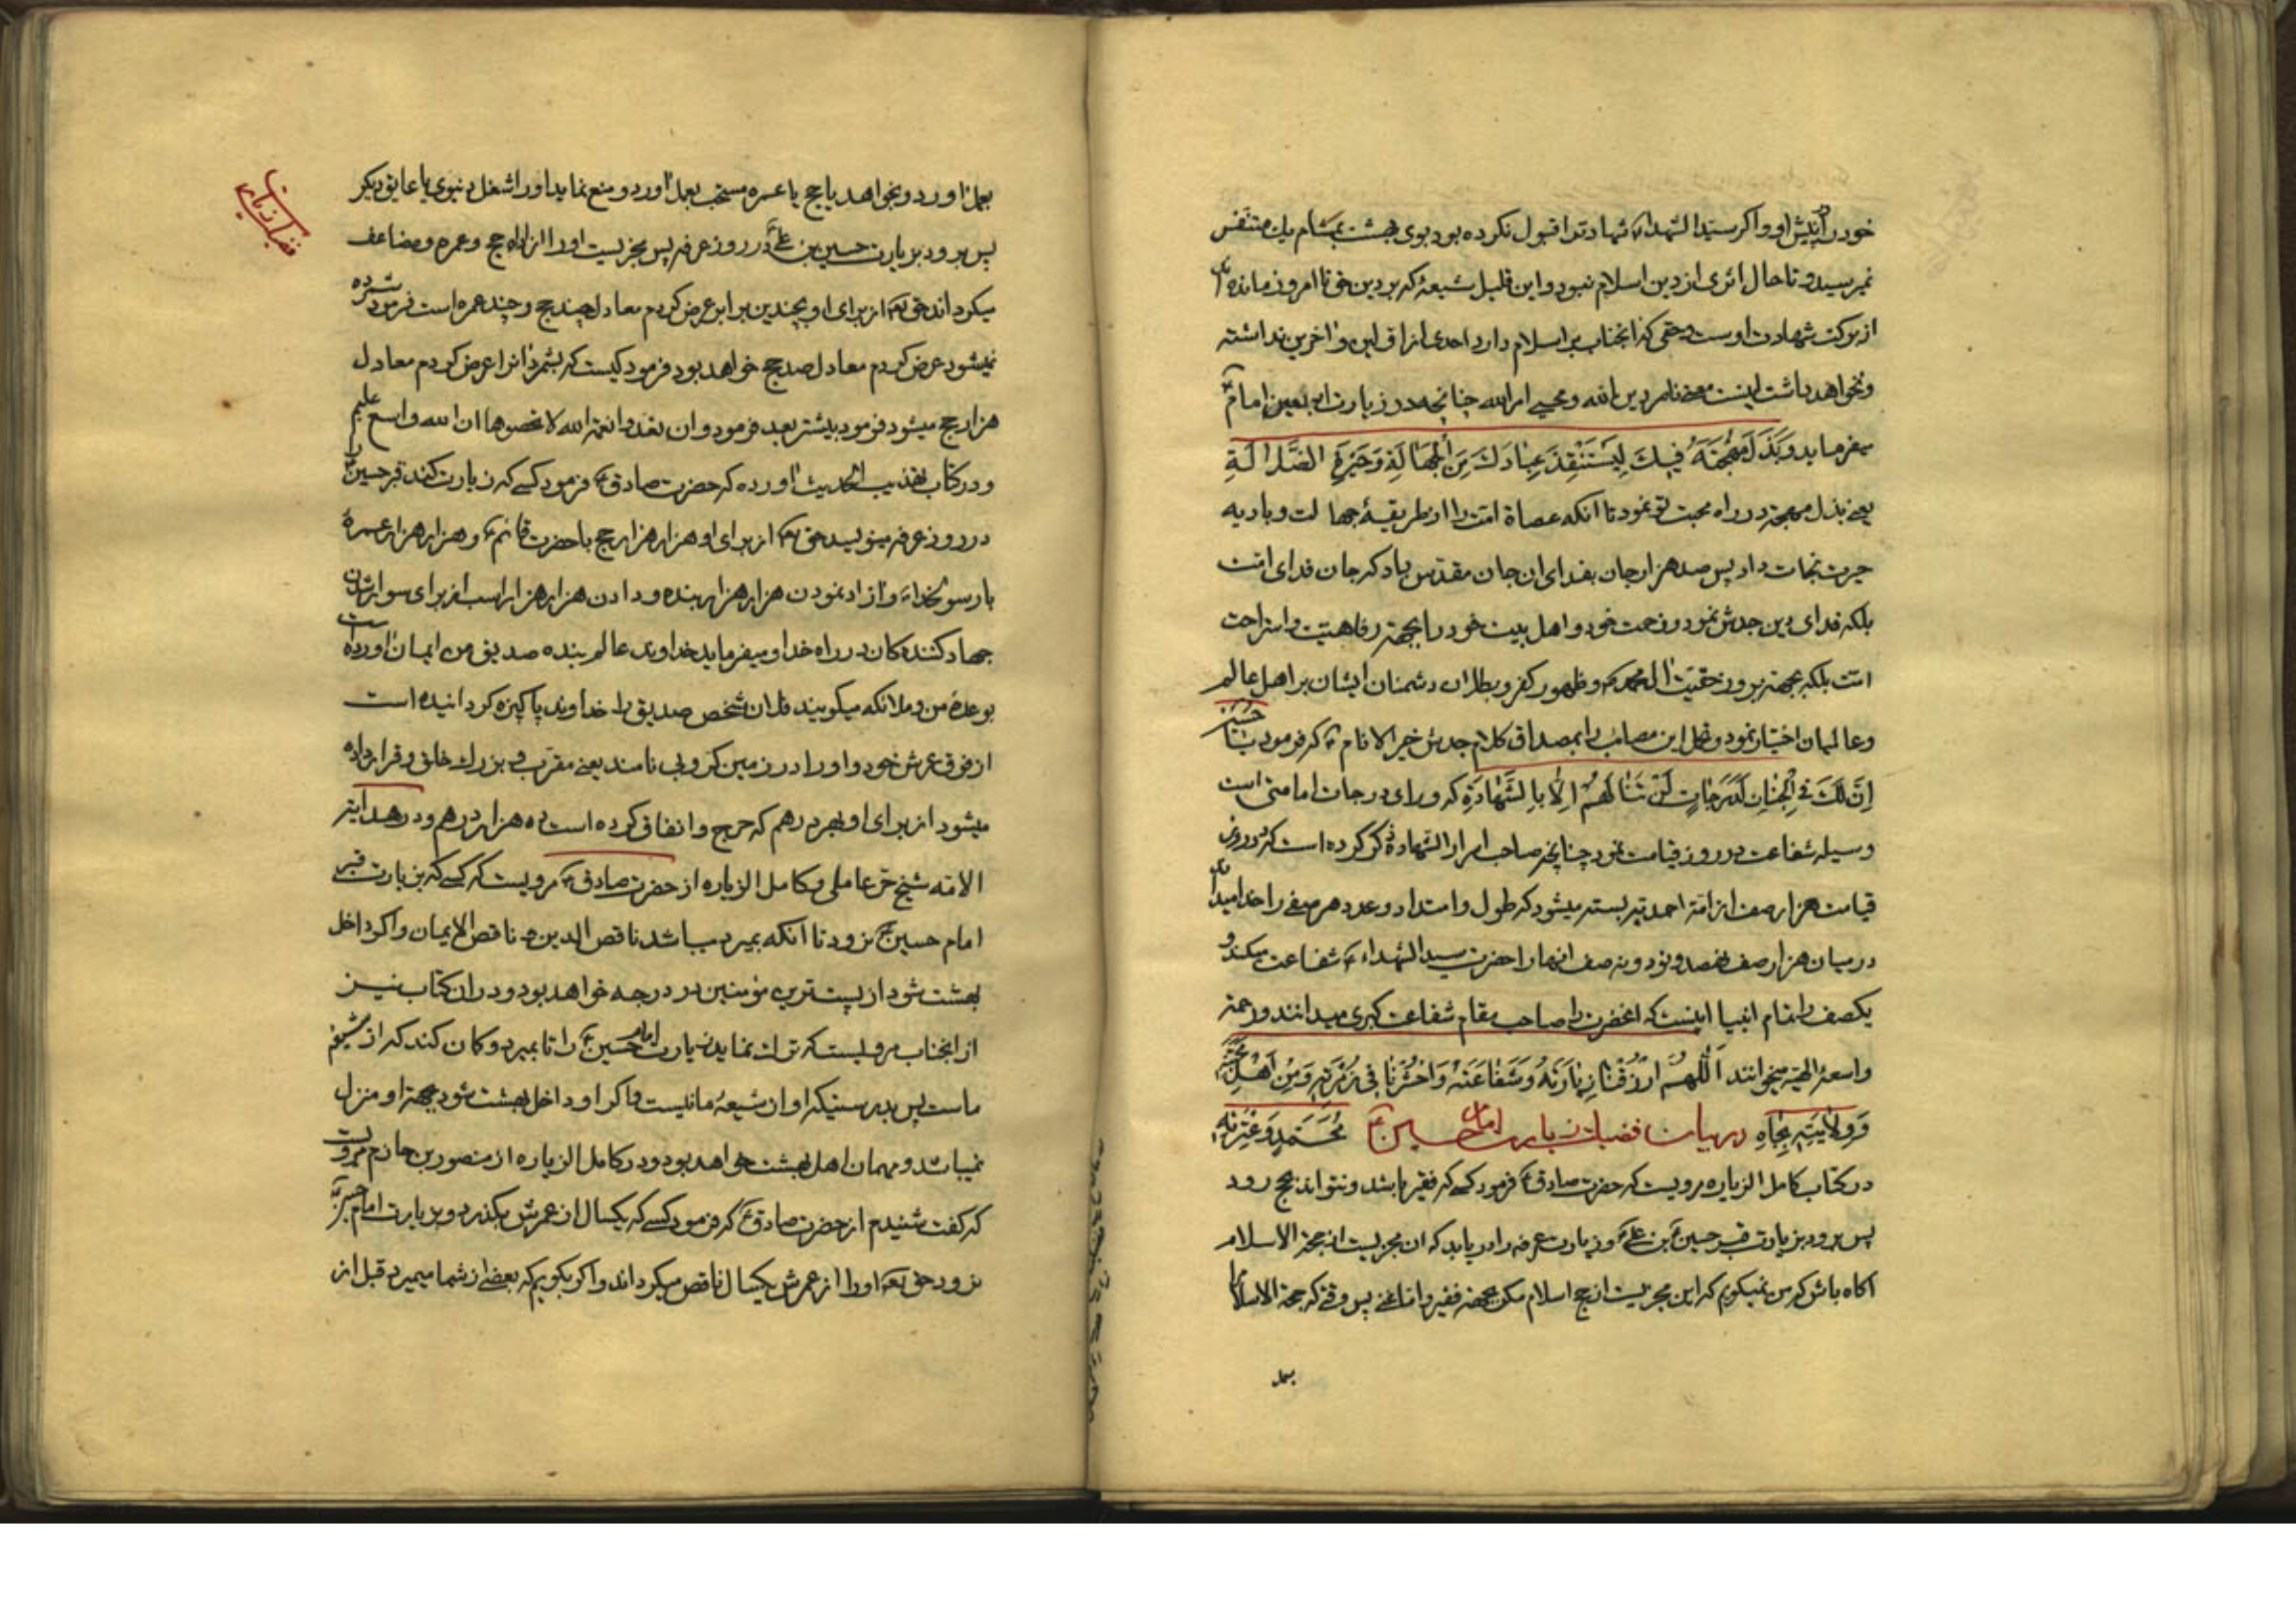 خود را پیش او و اکر سید الشهداء شهادترا قبول نکرده بود بوی بهشت بمشام یك متنفس
نمیرسید و تا حال اثری از دین اسلام نبود و این قلیل شیعهٔ که بر دین حق تا امروز مانده
از برکت شهادت اوست و حقی که انجناب بر اسلام دارد احدی از اولین و اخرین نداشته
و نخواهد داشت اینست معنی ناصر دین الله و محیی امر الله چنانچه در زیارت اربعین امام
میفرماید وَبَذَلَ مُهْجَتَهُ فِیكَ لِیَسْتَنْقِذَ عِبَادَكَ مِنَ الْجَهَالَةِ وَحَیْرَةِ الضَّلالَةِ
یعنی بذل مهجه در راه محبت تو نمود تا انکه عصاة امت را از طریقهٔ جهالت و بادیه
حیرت نجات داد پس صد هزار جان بفدای ان جان مقدس باد که جان فدای امت
بلکه فدای دین جدش نمود و زحمت خود و اهل بیت خود را بجهة رفاهیت و استراحت
امت بلکه بجهة بروز حقیت ال محمد و ظهور کفر و بطلان دشمنان ایشان بر اهل عالم
و عالمیان اختیار نمود و تحمل این مصائب را بمصداق کلام جدش خیر الانام که فرمود یا حسین
اِنَّ لَكَ فِی الْجِنَانِ لَدَرَجَاتٍ لَنْ تَنَالَهُمْ اِلّا بِالشَّهَادَةِ که ورای درجات امامتی است
وسیله شفاعت در روز قیامت نمود چنانچه صاحب اسرار الشهادة ذکر کرده است که در روز
قیامت هزار صف از امة احمد تیر بسته میشود که طول و امتداد و عدد هر صفی را خدا میداند
در میان هزار صف نهصد و نود و نه صف انها را حضرت سید الشهداء شفاعت میکند و
یکصف را تمام انبیا اینست که انحضرت را صاحب مقام شفاعت کبری میدانند و رحمة
واسعهٔ الهیه میخوانند اَللّهُمَّ ارْزُقْنَا زِیَارَتَهُ وَشَفَاعَتَهُ وَاحْشُرْنَا فِی زُمْرَتِهِ وَمِنْ اَهْلِ مَحَبَّتِهِ
وَ وِلَایَتِهِ بِجَاهِ مُحَمَّدٍ وَعِتْرَتِهِ در بیان فضیلت زیارت امام حسین
در کتاب کامل الزیاره مرویست که حضرت صادق فرمود کسی که فقیر باشد و نتواند بحج رود
پس برود بزیارت قبر حسین بن علی و زیارت عرفه را دریابد که ان مجزیست از حجة الاسلام
اکاه باش که من نمیکویم که این مجزیست از حج اسلام مکر بجهة فقیر و اما غنی پس وقتی که حجة الاسلام
بعمل
بعمل اورد و بخواهد یا حج یا عمره مستحب بعمل اورد و منع نماید او را شغل دنیوی یا عایق دیکر
پس برود بزیارت حسین بن علی در روز عرفه پس مجزیست او را از ادای حج و عمره و مضاعف
میکرداند حق تعه از برای او بچندین برابر عرض کردم معادل چند حج و چند عمره است فرمود شمرده
نمیشود عرض کردم معادل صد حج خواهد بود فرمود کیست که بشمرد انرا عرض کردم معادل
هزار حج میشود فرمود بیشتر بعد فرمود و ان تعدوا نعمة الله لا تحصوها ان الله واسع علیم
و در کتاب تهذیب الحدیث اورده که حضرت صادق فرمود کسی که زیارت کند قبر حسین را
در روز عرفه مینویسد حق تعه از برای او هزار هزار حج با حضرت قائم و هزار هزار عمرهٔ
با رسولخدا و ازاد نمودن هزار هزار بنده و دادن هزار هزار اسب از برای سوار شدن
جهاد کنندکان در راه خدا و میفرماید خداوند عالم بنده صدیق من ایمان اورده است
بوعدهٔ من و ملائکه میکویند فلان شخص صدیق را خداوند پاکیزه کردانیده است
از فوق عرش خود و او را در زمین کروبی نامند یعنی مقرب و بزرك خلق و قرار داده
میشود از برای او بهر درهم که خرج و انفاق کرده است ده هزار درهم و در هدایة
الامه شیخ حر عاملی و کامل الزیاره از حضرت صادق مرویست که کسی که بزیارت قبر
امام حسین نرود تا انکه بمیرد میباشد ناقص الدین و ناقص الایمان و اکر داخل
بهشت شود از پست‌ترین مؤمنین در درجه خواهد بود و در ان کتاب نیز
از انجناب مرویست که ترك نماید زیارت امام حسین را تا بمیرد و کان کند که از شیعهٔ
ماست پس بدرستیکه او از شیعهٔ ما نیست و اکر او داخل بهشت شود بجهة او منزل
نمیباشد و مهمان اهل بهشت خواهد بود و در کامل الزیاره از منصور بن حازم مرویست
که کفت شنیدم از حضرت صادق که فرمود کسی که یکسال از عمرش بکذرد و بزیارت امام حسین
نرود حق تعه او را از عمرش یکسال ناقص میکرداند و اکر بکویم که بعضی از شما میمیرد قبل از